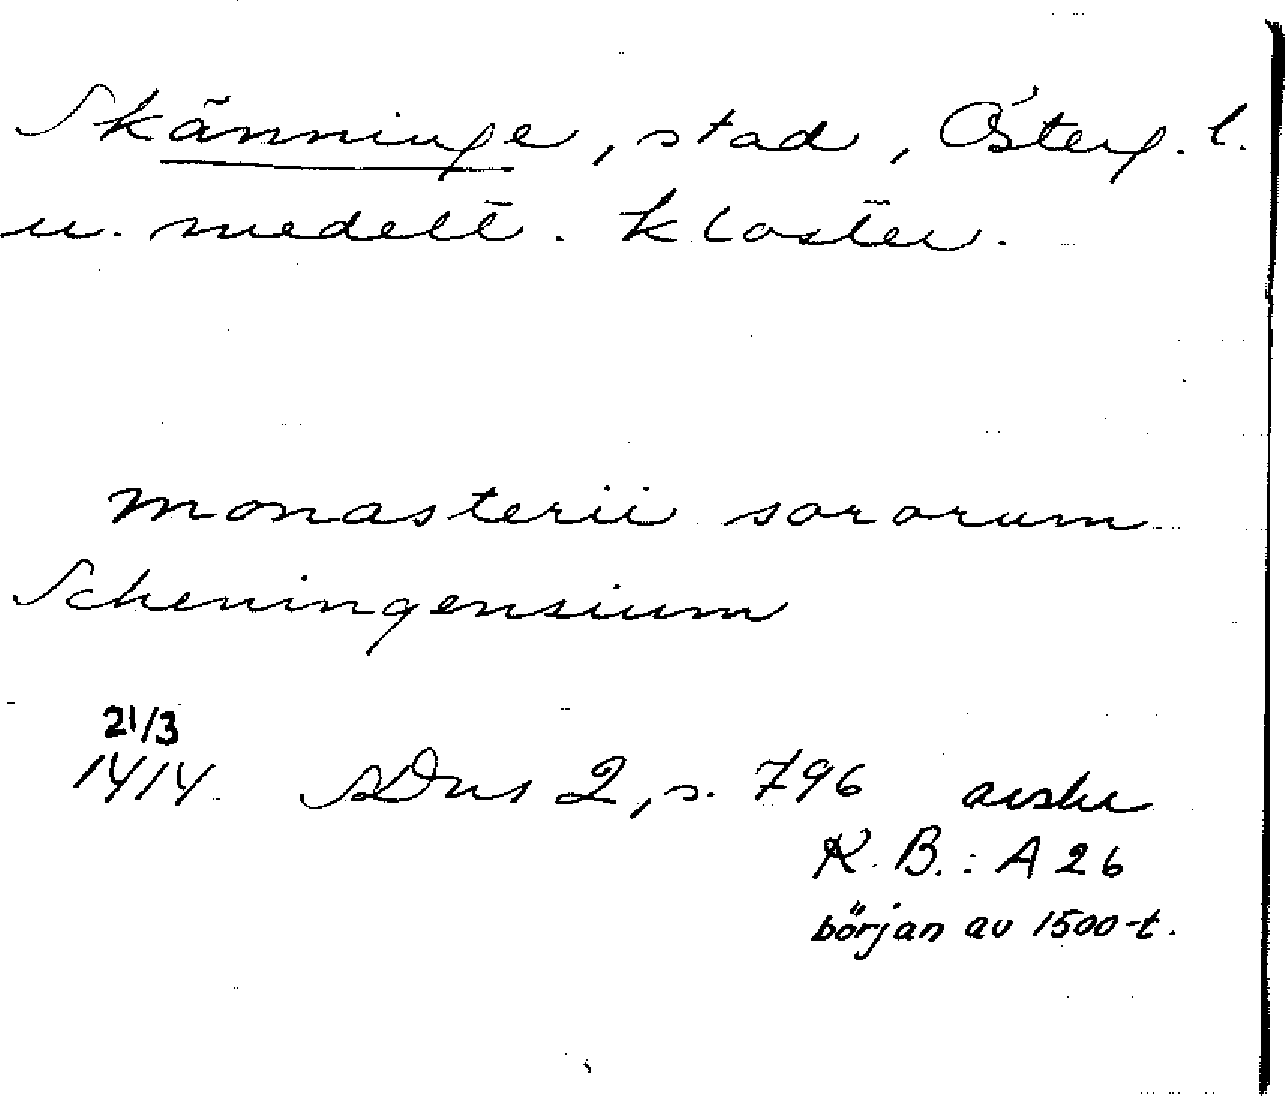 Skänninge, stad, Österg. l.
u. medelt. kloster.
monasterii sororum
Scheningensium
21/3
1414 SDns 2, s. 796 avskr
K. B. : A 26
början av 1500-t.